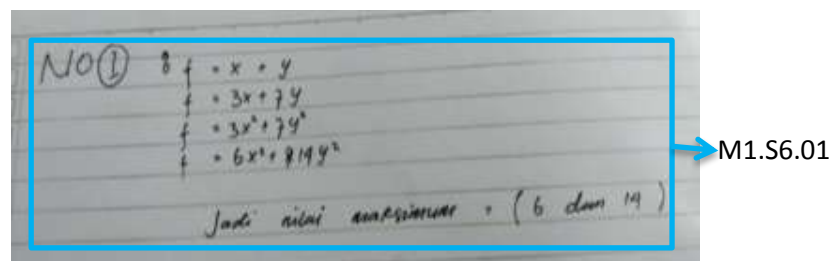 NO ① 8 f = x + y
f = 3x + 7y
f = 3x² + 7y²
f = 6x² + 14y²
Jadi nilai maksimum = ( 6 dan 14 )
M1.S6.01